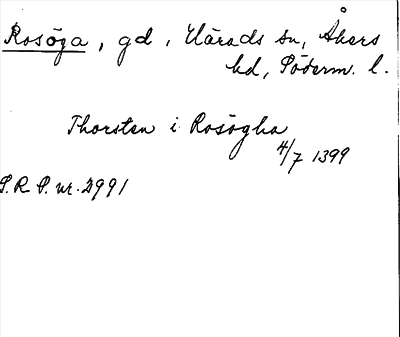 Rosöga, gd, Härads sn, Åkers
hd, Söderm. l.
Thorsten i Rosögha
4/7 1399
S.R.P. nr. 2991